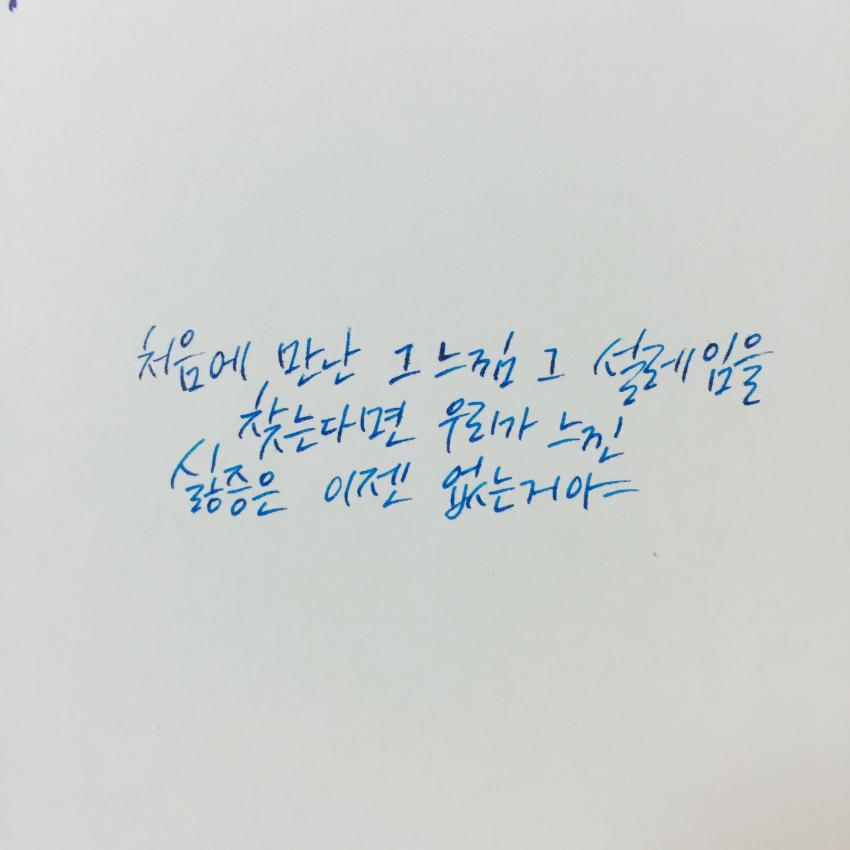 처음에 만난 그 느낌 그 설레임을
찾는다면 우리가 느낀
싫증은 이젠 없는거야